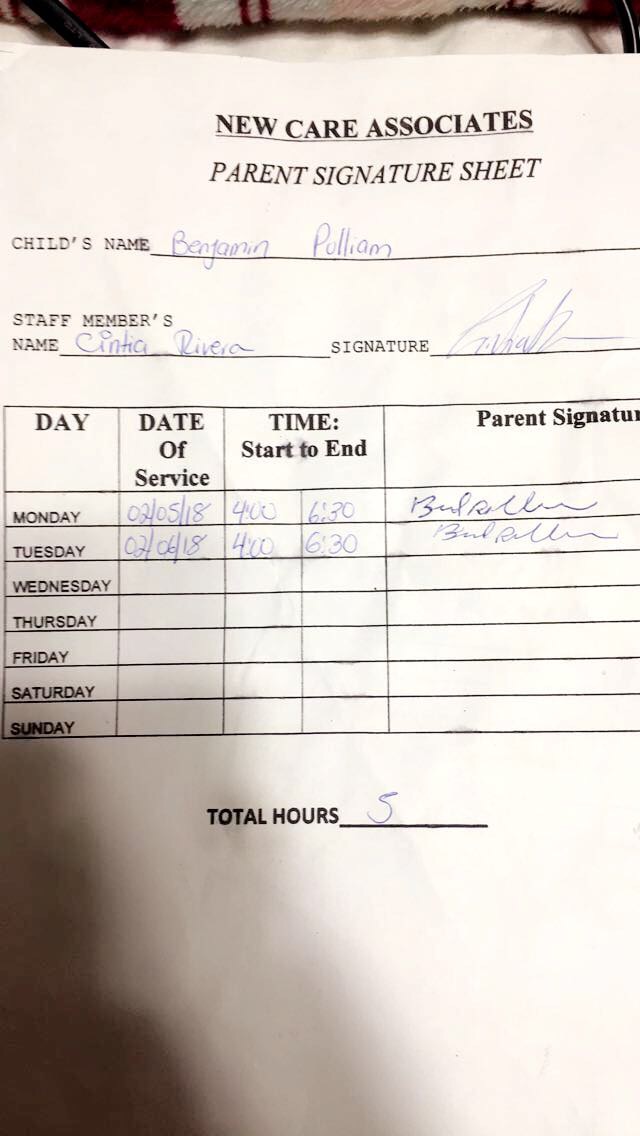 NEW CARE ASSOCIATES
PARENT SIGNATURE SHEET
CHILD'S NAME Benjamin Pulliam
STAFF MEMBER'S
NAME Cintia Rivera SIGNATURE
DAY DATE Of Service TIME: Start to End Parent Signatur
MONDAY 02/05/18 4:00 6:30
TUESDAY 02/06/18 4:00 6:30
WEDNESDAY
THURSDAY
FRIDAY
SATURDAY
SUNDAY
TOTAL HOURS 5